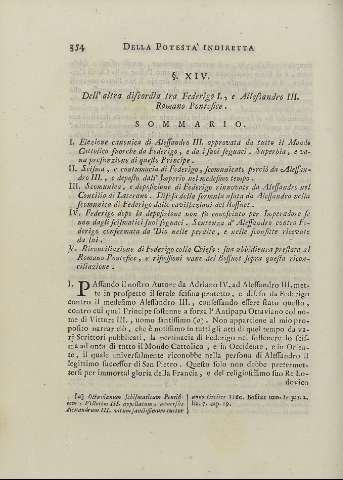 354 DELLA POTESTA' INDIRETTA
§. XIV.
Dell' altra discordia tra Federigo I., e Alessandro III.
Romano Pontefice.
SOMMARIO.
I. Elezione canonica di Alessandro III. approvata da tutto il Mondo
Cattolico fuorche da Federigo, e da' suoi seguaci. Superbia, e va-
na presunzione di questo Principe.
II. Scisma, e contumacia di Federigo, scomunicato perciò da Alessan-
dro III., e deposto dall' Imperio nel medesimo tempo.
III. Scomunica, e deposizione di Federigo rinnovate da Alessandro nel
Concilio di Laterano. Difesa della formola usata da Alessandro nella
scomunica di Federigo dalle cavillazioni del Bossuet.
IV. Federigo dopo la deposizione non fu conosciuto per Imperadore se
non dagli scismatici suoi seguaci. Sentenza d' Alessandro contra Fe-
derigo confermata da Dio nelle perdite, e nelle sconfitte ricevute
da lui.
V. Riconciliazione di Federigo colla Chiesa: sua ubbidienza prestata al
Romano Pontefice, e riflessioni vane del Bossuet sopra questa ricon-
ciliazione.
I. PAssando il nostro Autore da Adriano IV. ad Alessandro III. met-
te in prospetto il ferale scisma protetto, e difeso da Federigo
contro il medesimo Alessandro III., confessando essere stato questo,
contro cui quel Principe sostenne a forza l' Antipapa Ottaviano col no-
me di Vittore III., uomo faziosissimo (a). Non appartiene al mio pro-
posito narrar ciò, che è notissimo in tutti gli atti di quel tempo da va-
rj Scrittori pubblicati, la pertinacia di Federigo nel sostenere lo scis-
ma ad onta di tutto il Mondo Cattolico, e in Occidente, e in Orien-
te, il quale universalmente riconobbe nella persona di Alessandro il
legittimo successor di San Pietro. Questo solo non debbo pretermet-
tersi per immortal gloria della Francia, e del religiosissimo suo Re Lo-
dovico
(a) Octavianum schismaticum Pontifi-
cem, Victorem III. appellatum, adversus
Alexandrum III. virum sanctissimum
anno circiter 1160. Bossuet tom. 1. par. 1.
lib. 7. cap. 19.